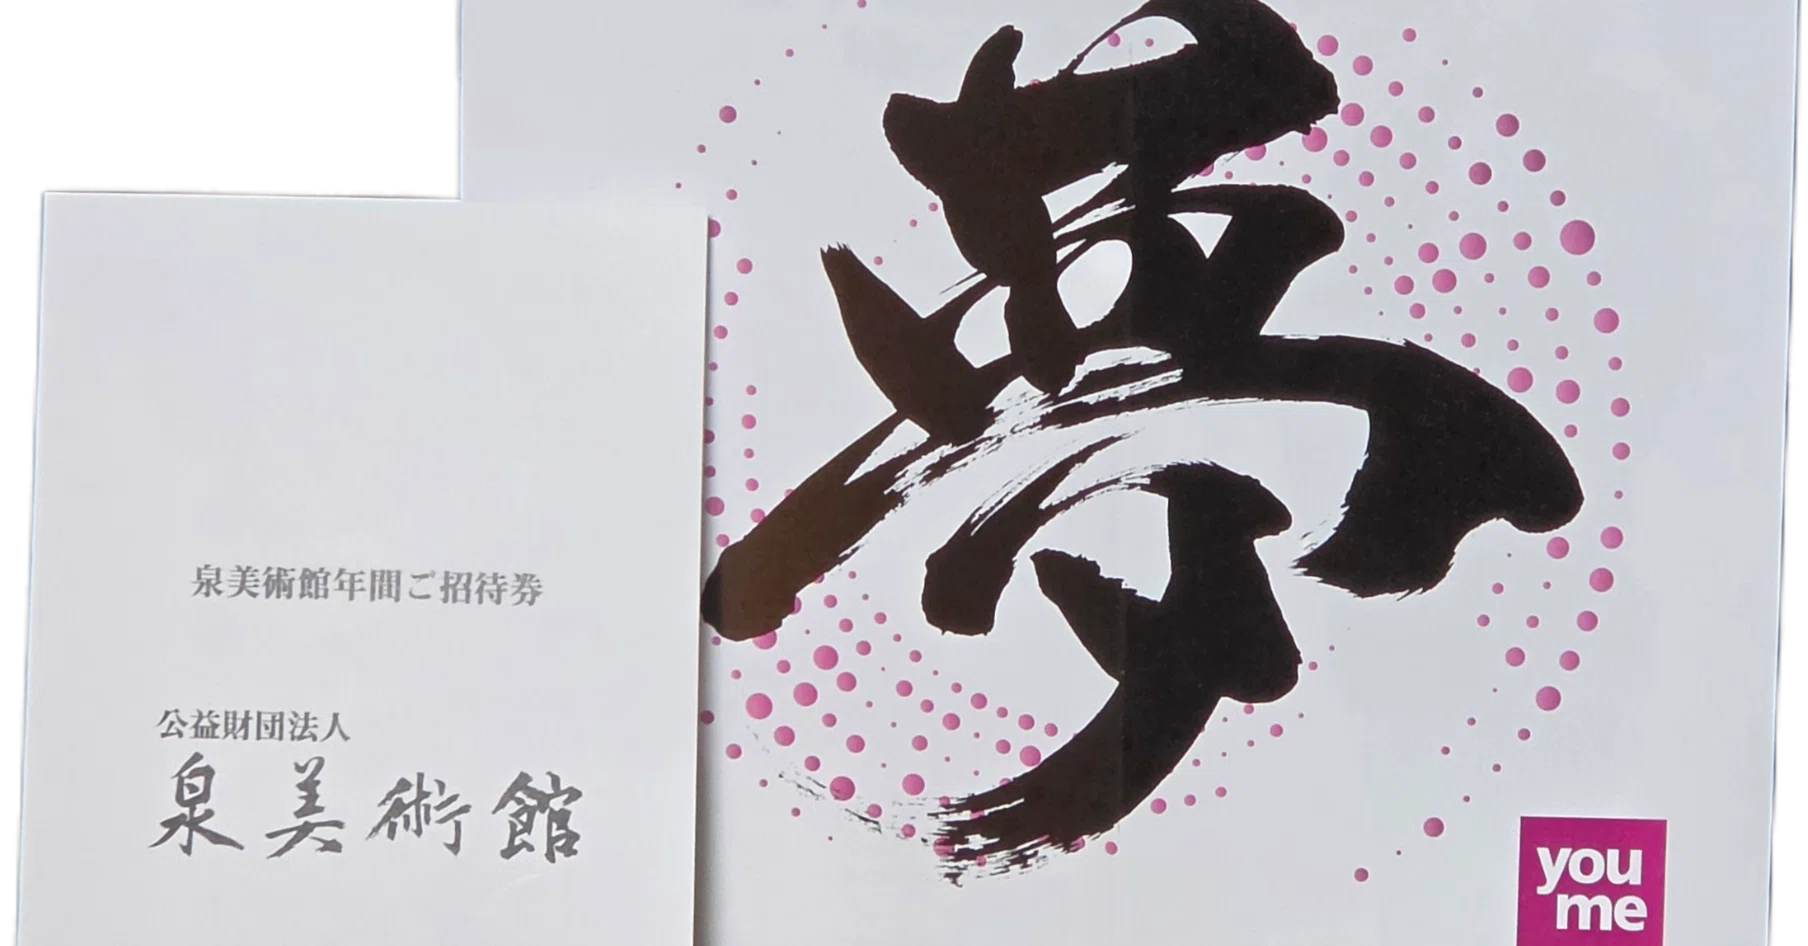 夢
泉美術館年間ご招待券
公益財団法人
泉美術館
you
me